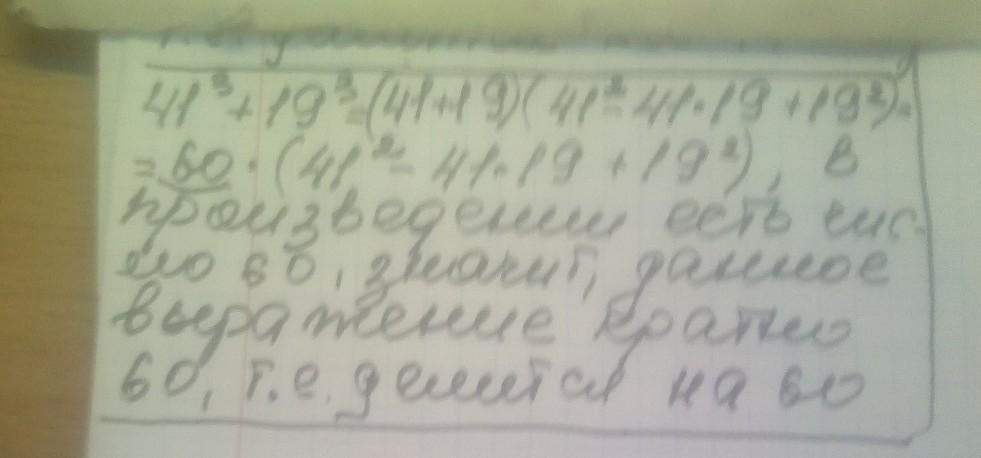 41³ + 19³ = (41+19)(41² - 41·19 + 19²) =
= 60 · (41² - 41·19 + 19²), в
произведении есть чис-
ло 60, значит, данное
выражение кратно
60, т.е. делится на 60